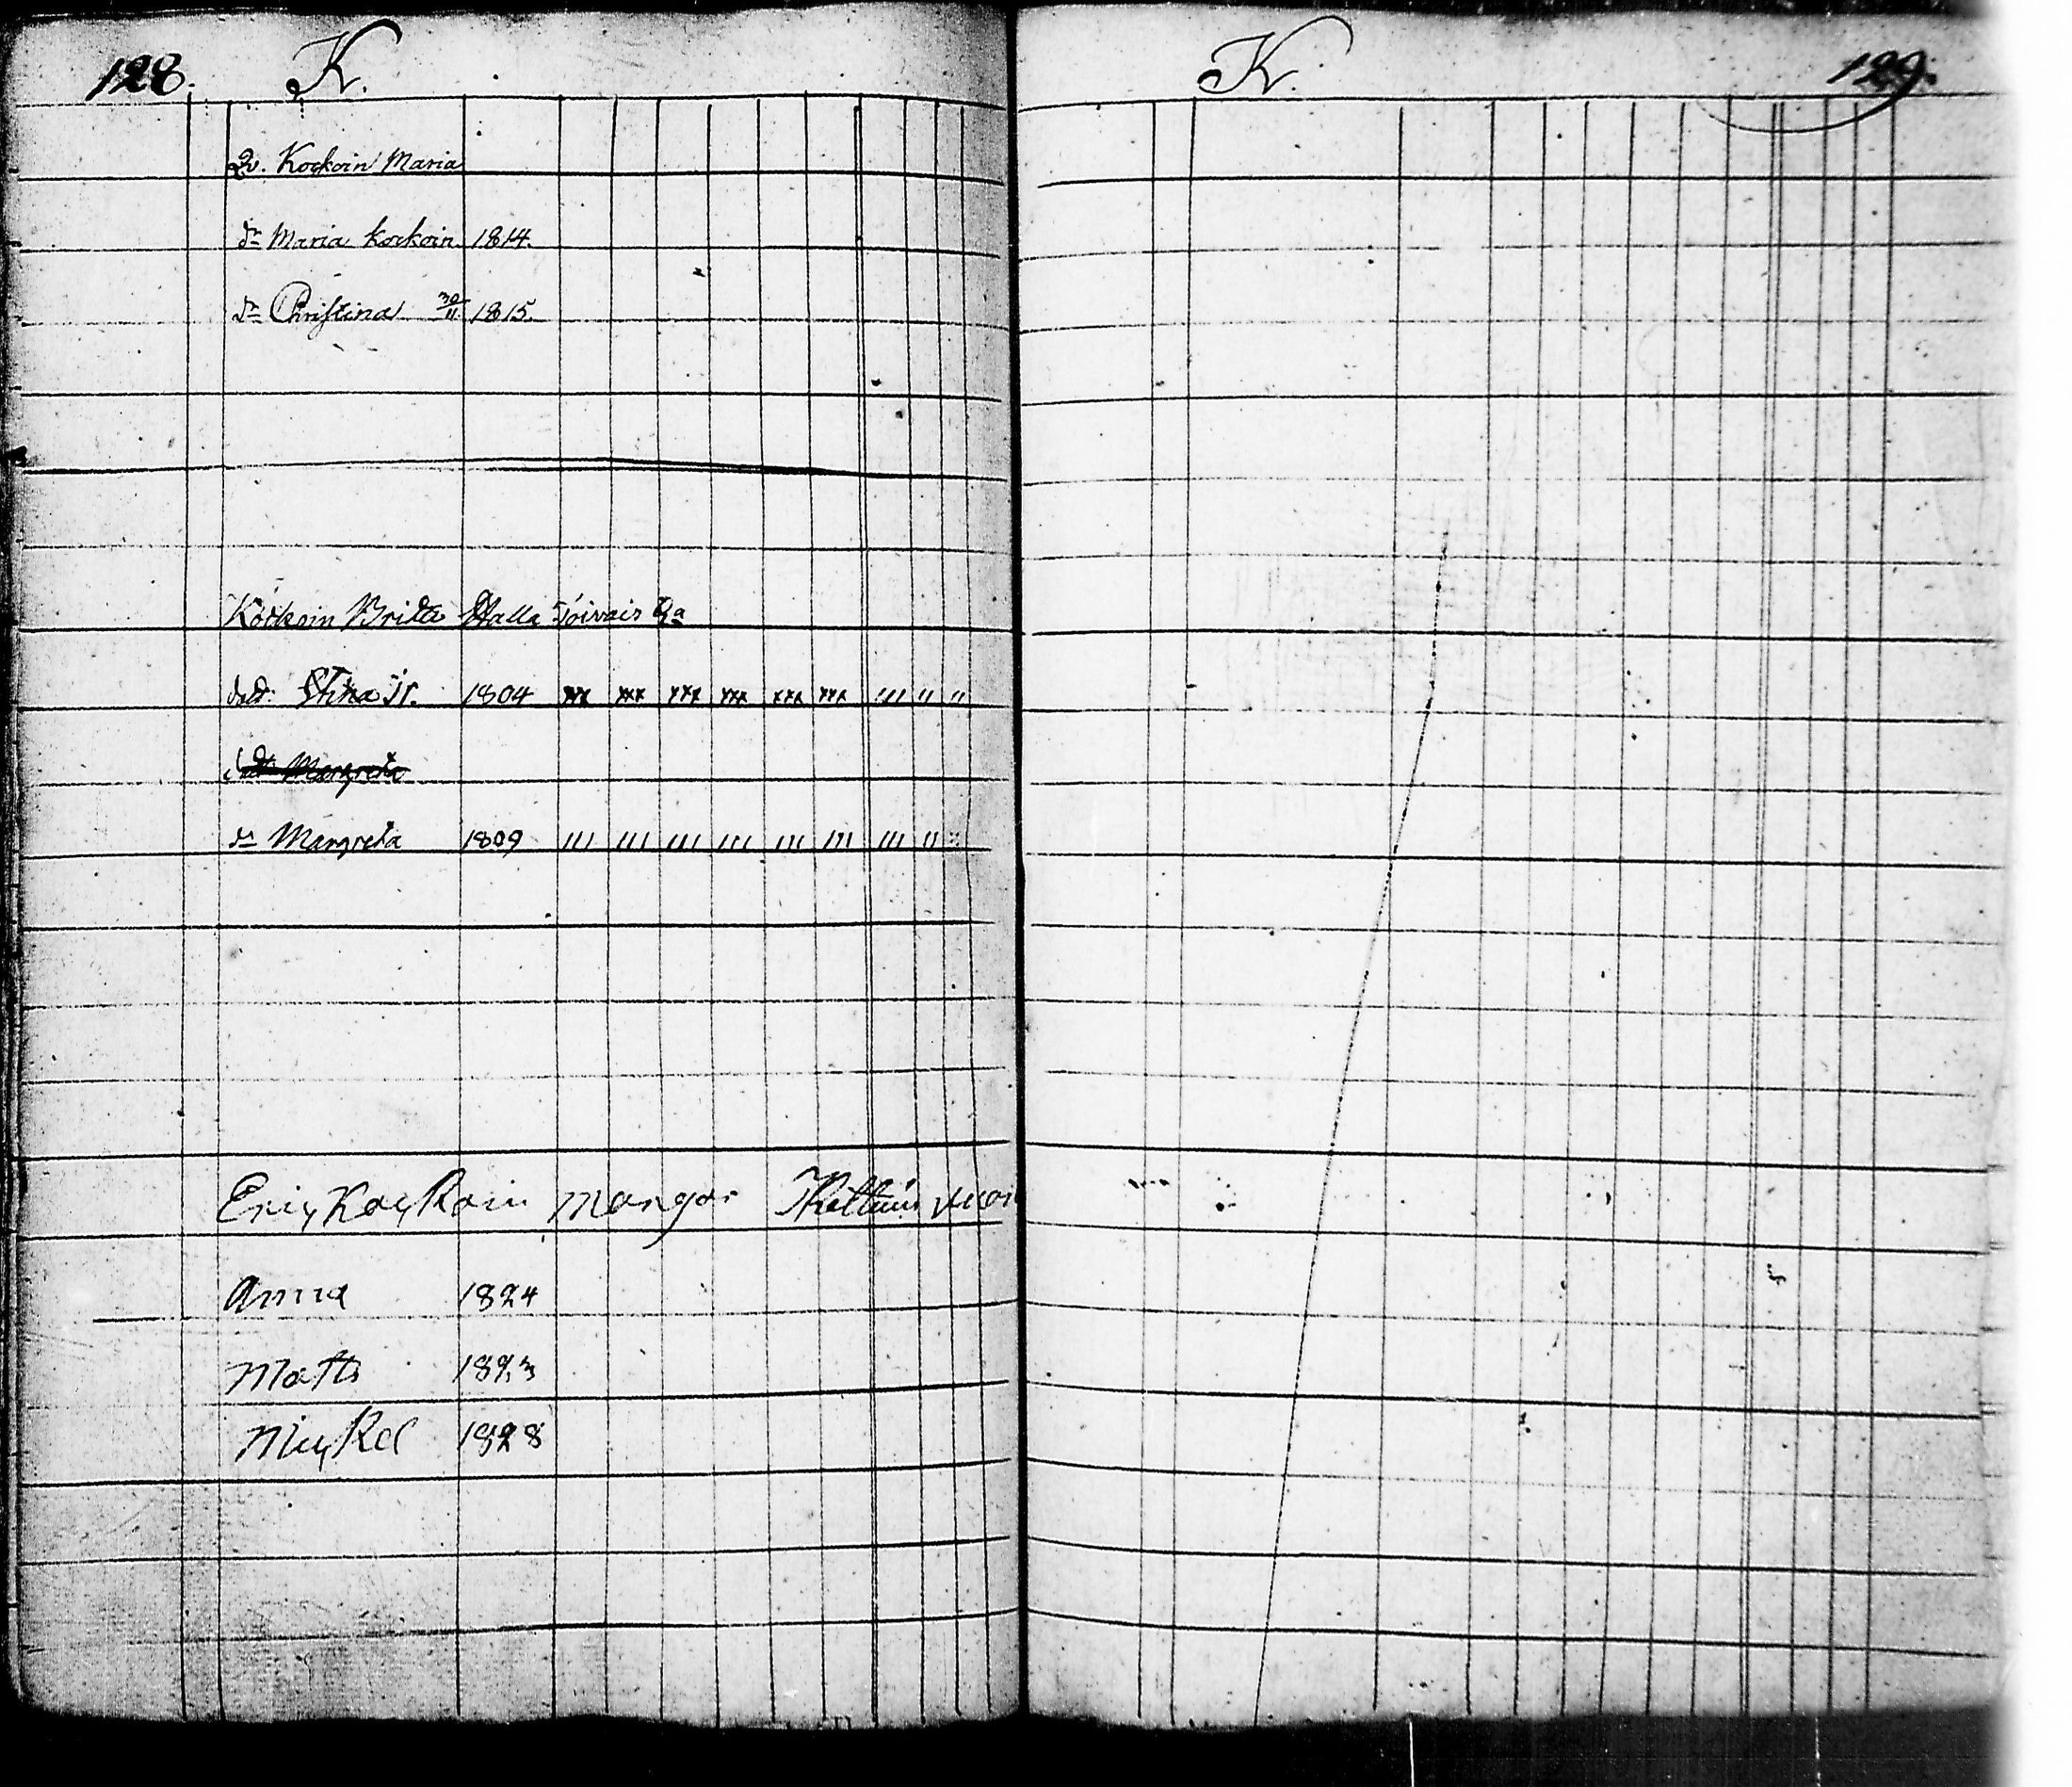 128. K.
Q. Kockoin Maria
dr Maria Kockoin 1814.
dr Christina 30/11 1815.
Kockoin Brita Halla Toivais
dotr: Stina 1804 xxx xxx xxx xxx xxx xxx ııı ıı ıı
dotr Margreta
dr Margreta 1809 ııı ııı ııı ııı ııı ııı ııı ıı
Eric Kockoin Margar
Anna 1824
Matts 1823
Mickel 1828
K. 129.